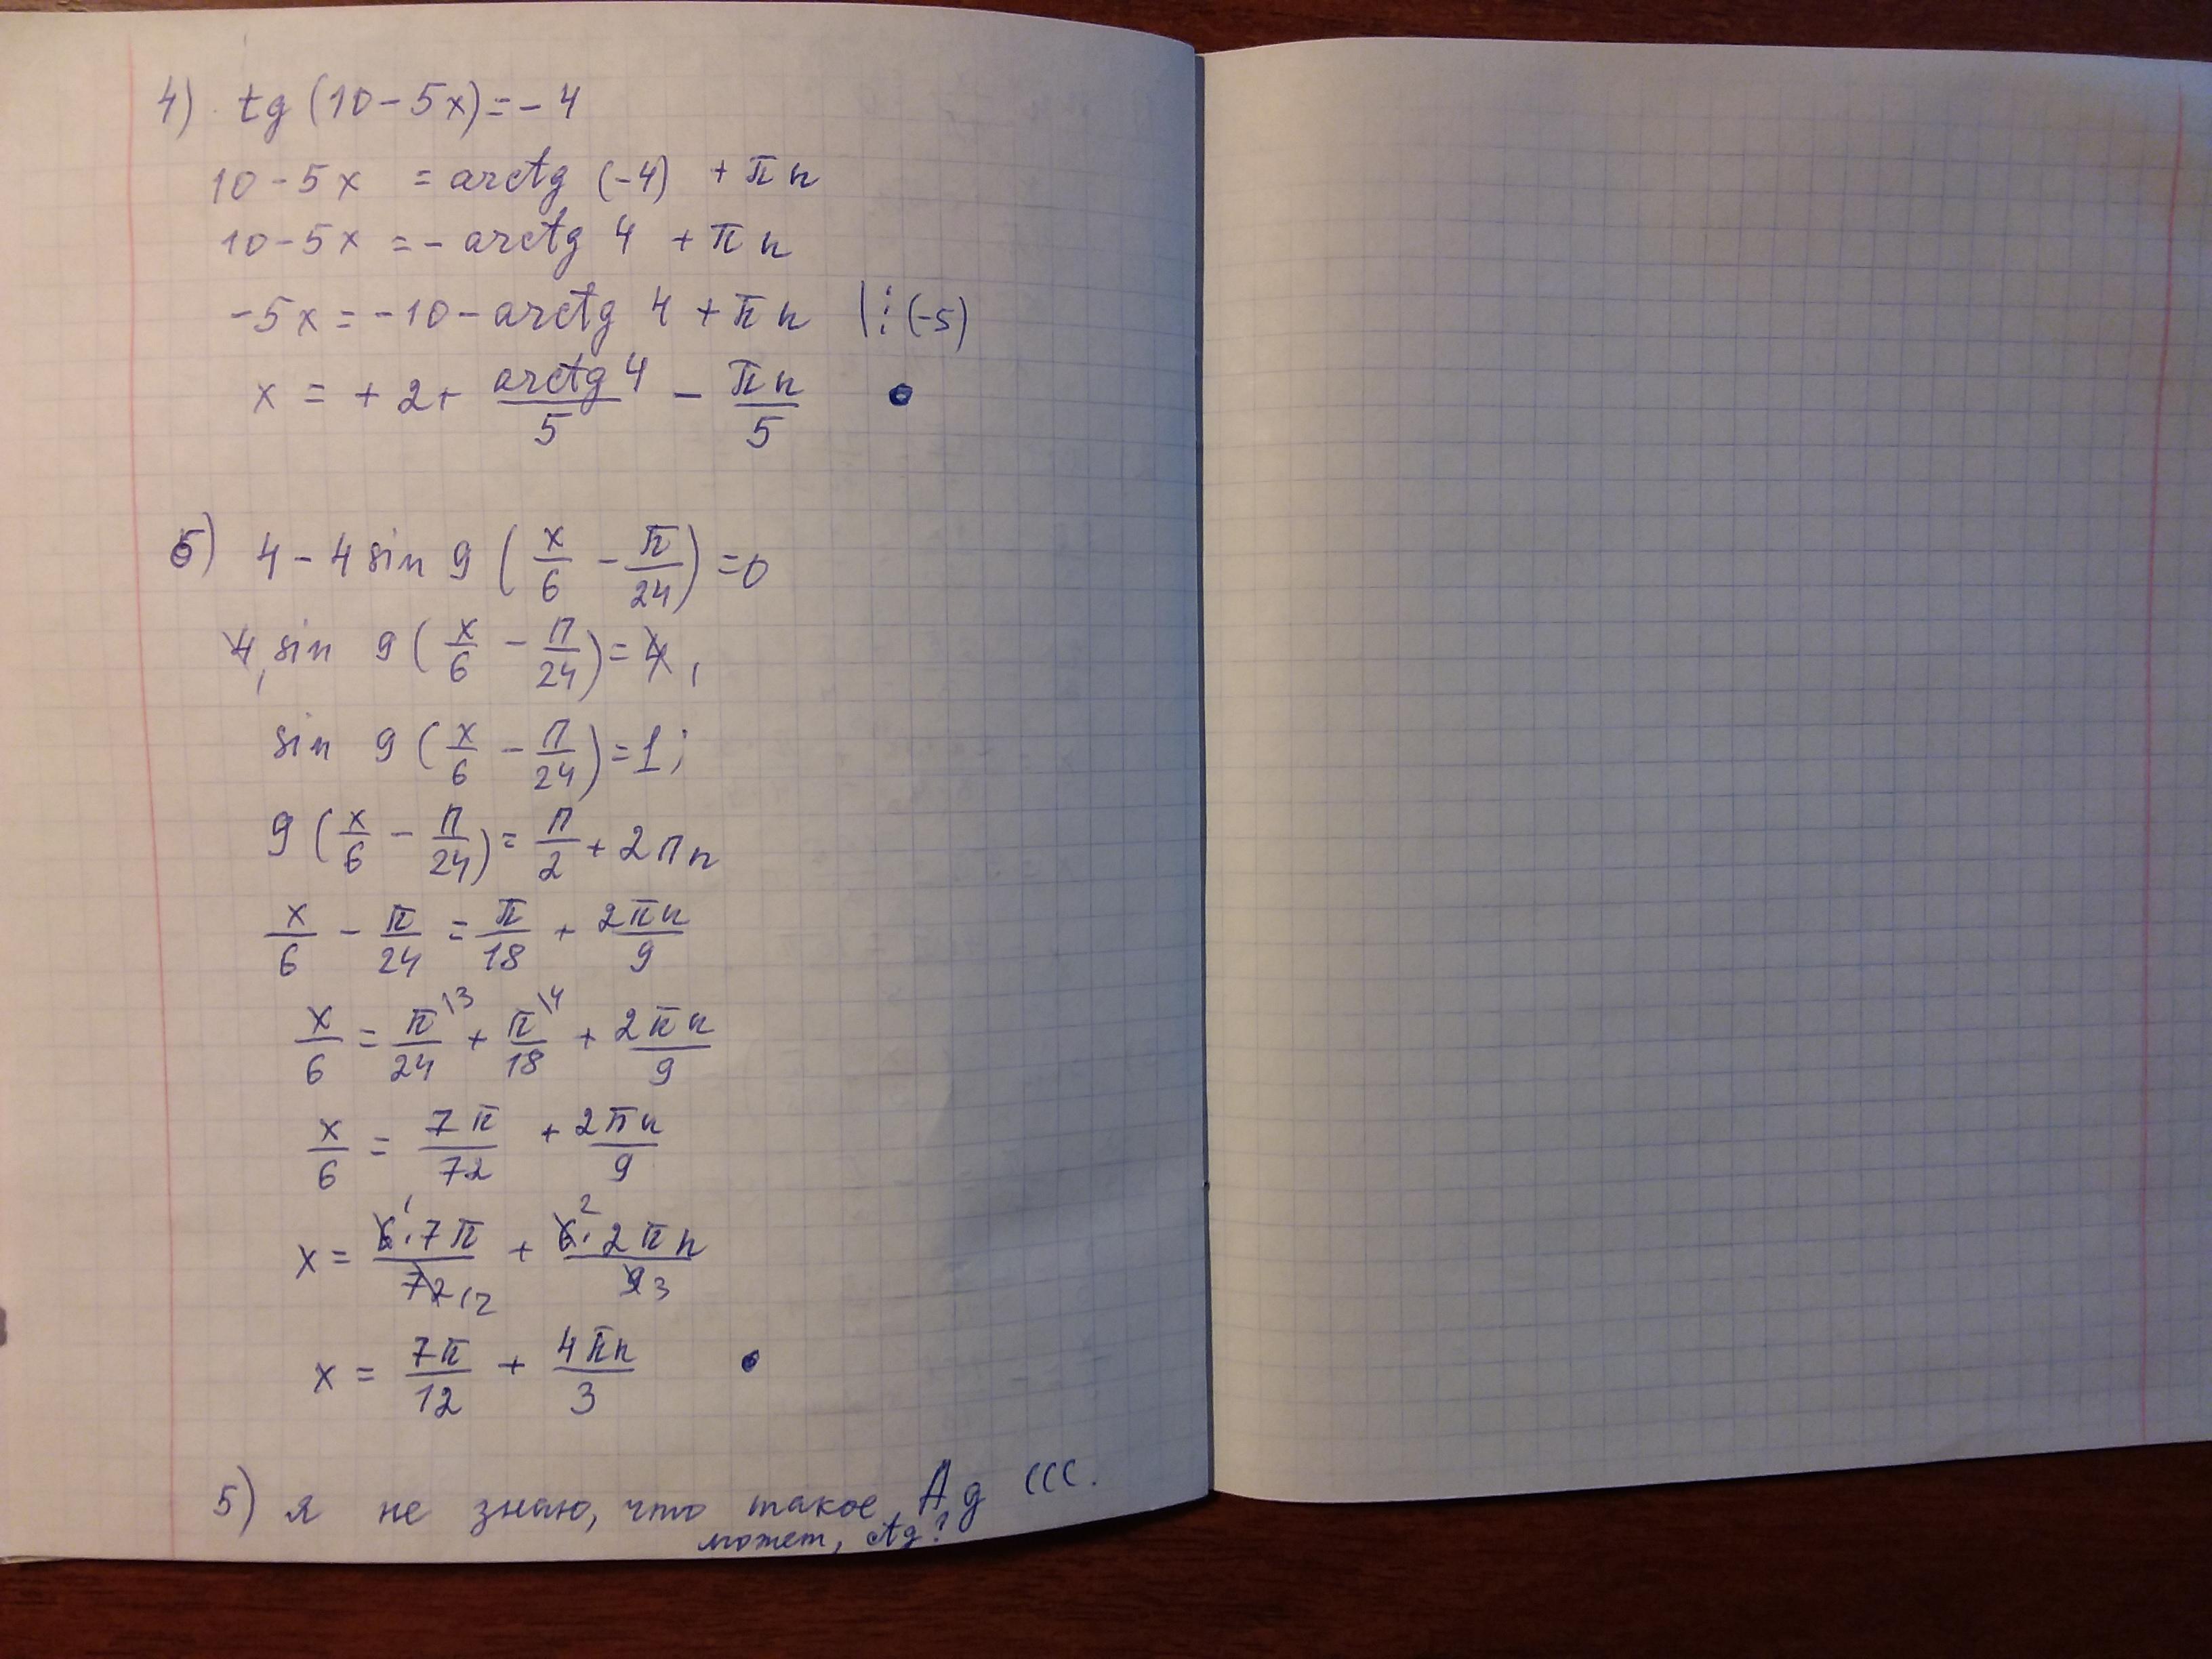 4) tg (10 - 5x) = - 4
10 - 5x = arctg (-4) + πn
10 - 5x = - arctg 4 + πn
-5x = -10 - arctg 4 + πn |:(-5)
x = + 2 + arctg 4/5 - πn/5
6) 4 - 4 sin 9 (x/6 - π/24) = 0
4 sin 9 (x/6 - π/24) = 4,
sin 9 (x/6 - π/24) = 1;
9 (x/6 - π/24) = π/2 + 2πn
x/6 - π/24 = π/18 + 2πn/9
x/6 = π/24 \3 + π/18 \4 + 2πn/9
x/6 = 7π/72 + 2πn/9
x = 6 1 · 7π/72 12 + 6 2 · 2πn/9 3
x = 7π/12 + 4πn/3
5) я не знаю, что такое Ag (((.
может, ctg?